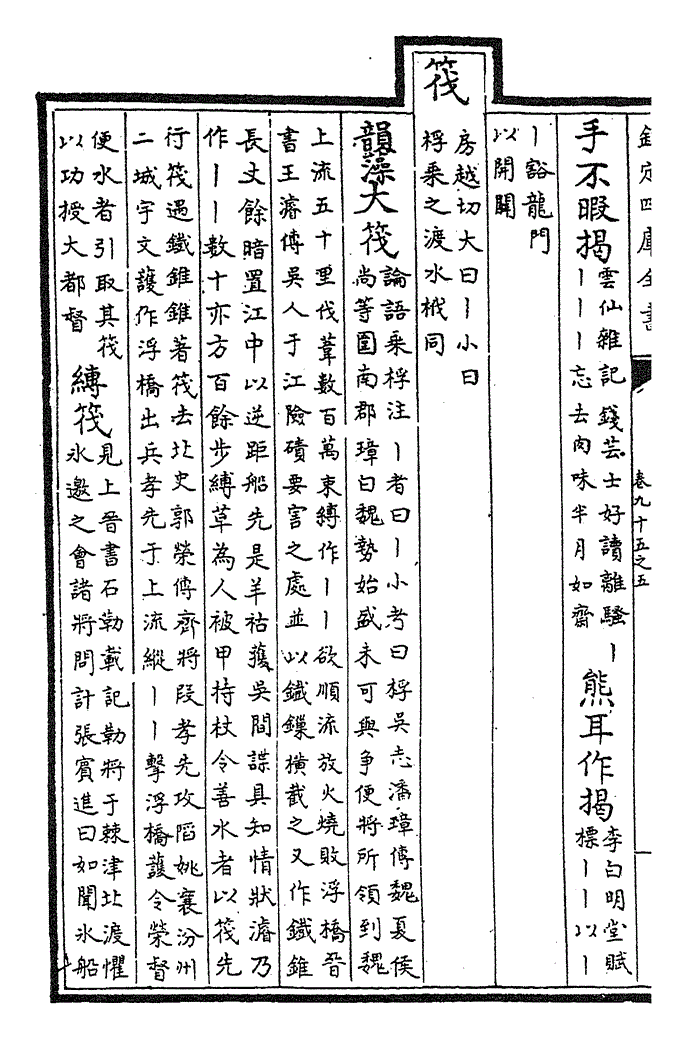 欽定四庫全書
卷九十五之五
手不暇揭
雲仙雜記錢芸士好讀離騷丨
丨丨丨忘去肉味半月如齋
熊耳作揭
李白明堂賦
標丨丨以丨
丨豁龍門
以開關
筏
房越切大曰丨小曰
桴乘之渡水栰同
韻藻大筏
論語乘桴注丨者曰丨小者曰桴吳志潘璋傳魏夏侯
尚等圍南郡璋曰魏勢始盛未可與爭便將所領到魏
上流五十里伐葦數百萬束縛作丨丨欲順流放火燒敗浮橋晉
書王濬傳吳人于江險磧要害之處並以鐵鏁橫截之又作鐵錐
長丈餘暗置江中以逆距船先是羊祜獲吳間諜具知情狀濬乃
作丨丨數十亦方百餘步縛草為人被甲持杖令善水者以筏先
行筏遇鐵錐錐著筏去北史郭榮傳齊將段孝先攻陷姚襄汾州
二城宇文護作浮橋出兵孝先于上流縱丨丨擊浮橋護令榮督
便水者引取其筏
以功授大都督
縛筏
見上晉書石勒載記勒將于棘津北渡懼
氷邀之會諸將問計張賓進曰如聞氷船